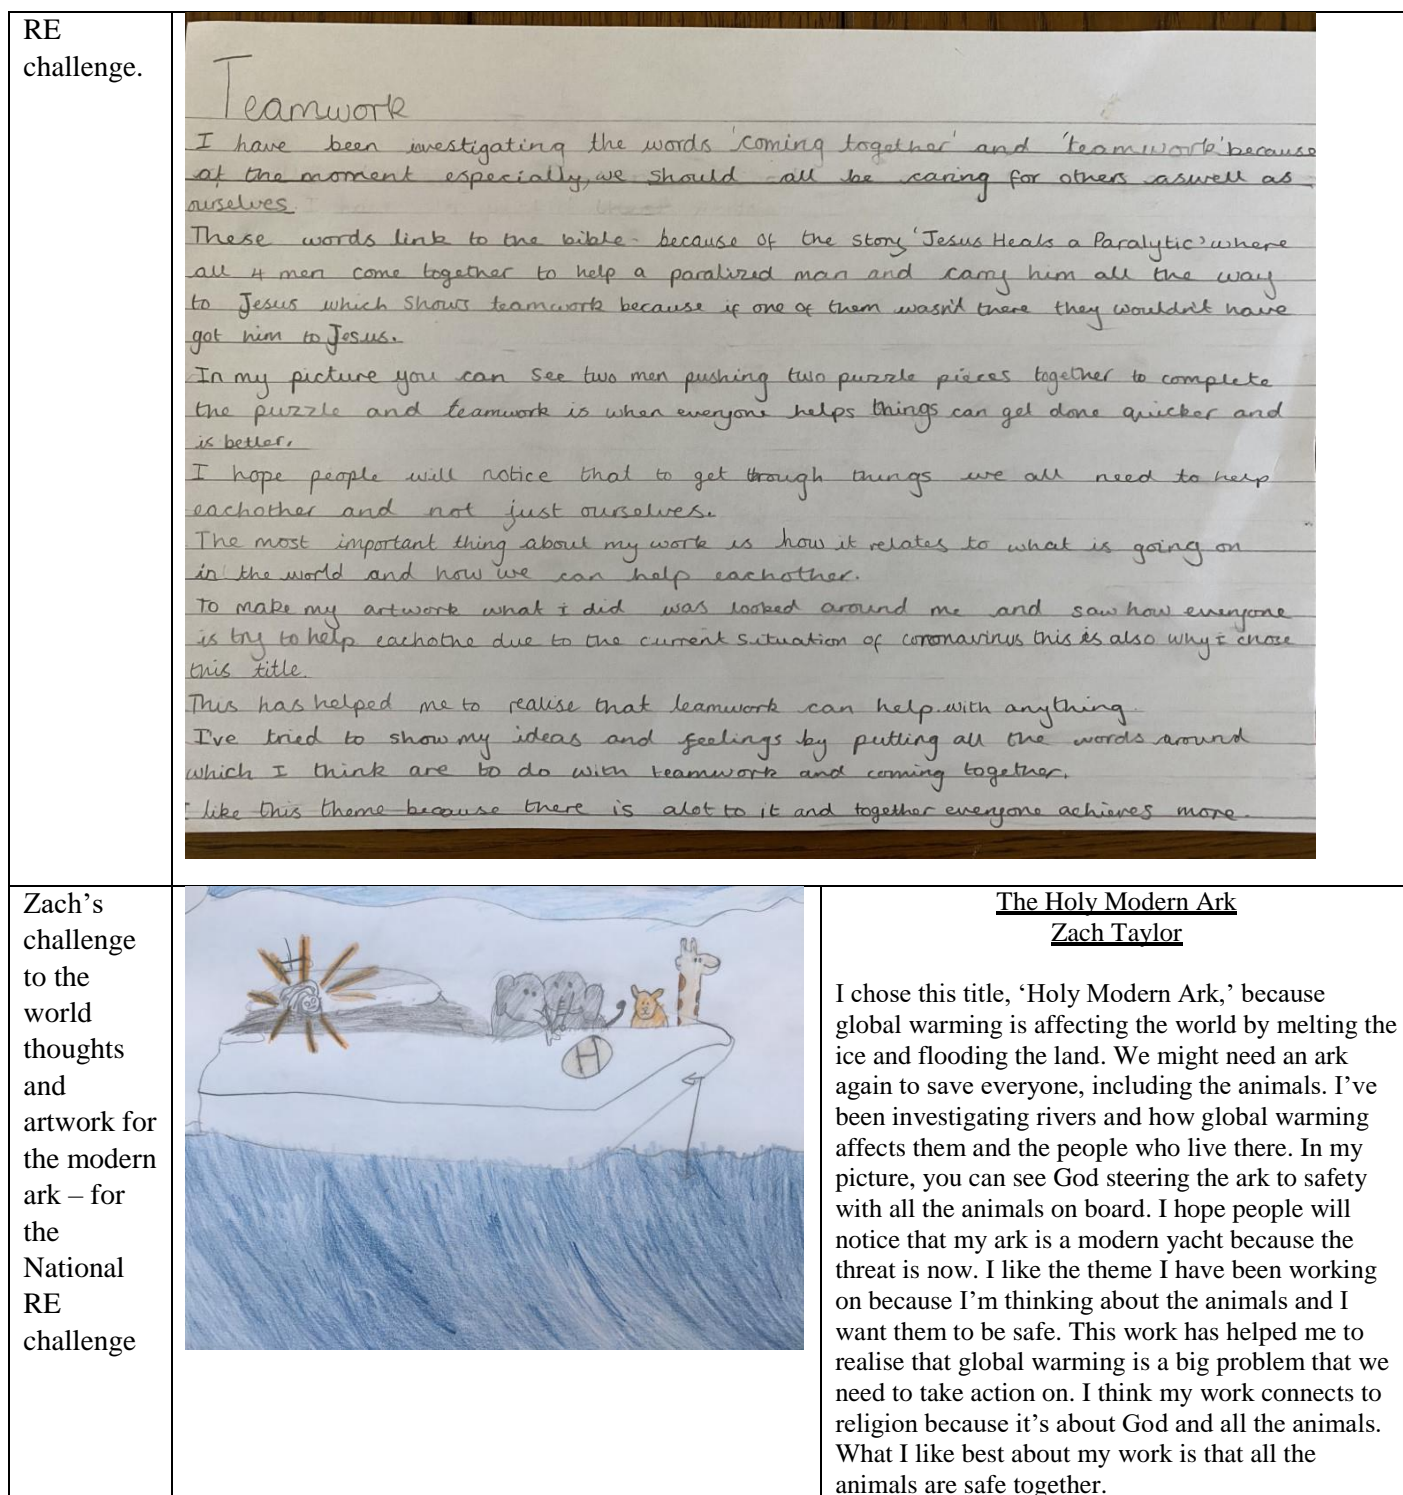 RE
challenge.
Teamwork
I have been investigating the words 'coming together' and 'teamwork' because
at the moment especially, we should all be caring for others aswell as
ourselves.
These words link to the bible because of the story 'Jesus Heals a Paralytic' where
all 4 men come together to help a paralized man and carry him all the way
to Jesus which shows teamwork because if one of them wasn't there they wouldn't have
got him to Jesus.
In my picture you can see two men pushing two puzzle pieces together to complete
the puzzle and teamwork is when everyone helps things can get done quicker and
is better.
I hope people will notice that to get through things we all need to help
eachother and not just ourselves.
The most important thing about my work is how it relates to what is going on
in the world and how we can help eachother.
To make my artwork what i did was looked around me and saw how everyone
is try to help eachothe due to the current situation of coronavirus this is also why i chose
this title.
This has helped me to realise that teamwork can help with anything.
I've tried to show my ideas and feelings by putting all the words around
which I think are to do with teamwork and coming together.
I like this theme because there is alot to it and together everyone achieves more.
Zach's
challenge
to the
world
thoughts
and
artwork for
the modern
ark – for
the
National
RE
challenge
H
The Holy Modern Ark
Zach Taylor
I chose this title, 'Holy Modern Ark,' because
global warming is affecting the world by melting the
ice and flooding the land. We might need an ark
again to save everyone, including the animals. I've
been investigating rivers and how global warming
affects them and the people who live there. In my
picture, you can see God steering the ark to safety
with all the animals on board. I hope people will
notice that my ark is a modern yacht because the
threat is now. I like the theme I have been working
on because I'm thinking about the animals and I
want them to be safe. This work has helped me to
realise that global warming is a big problem that we
need to take action on. I think my work connects to
religion because it's about God and all the animals.
What I like best about my work is that all the
animals are safe together.